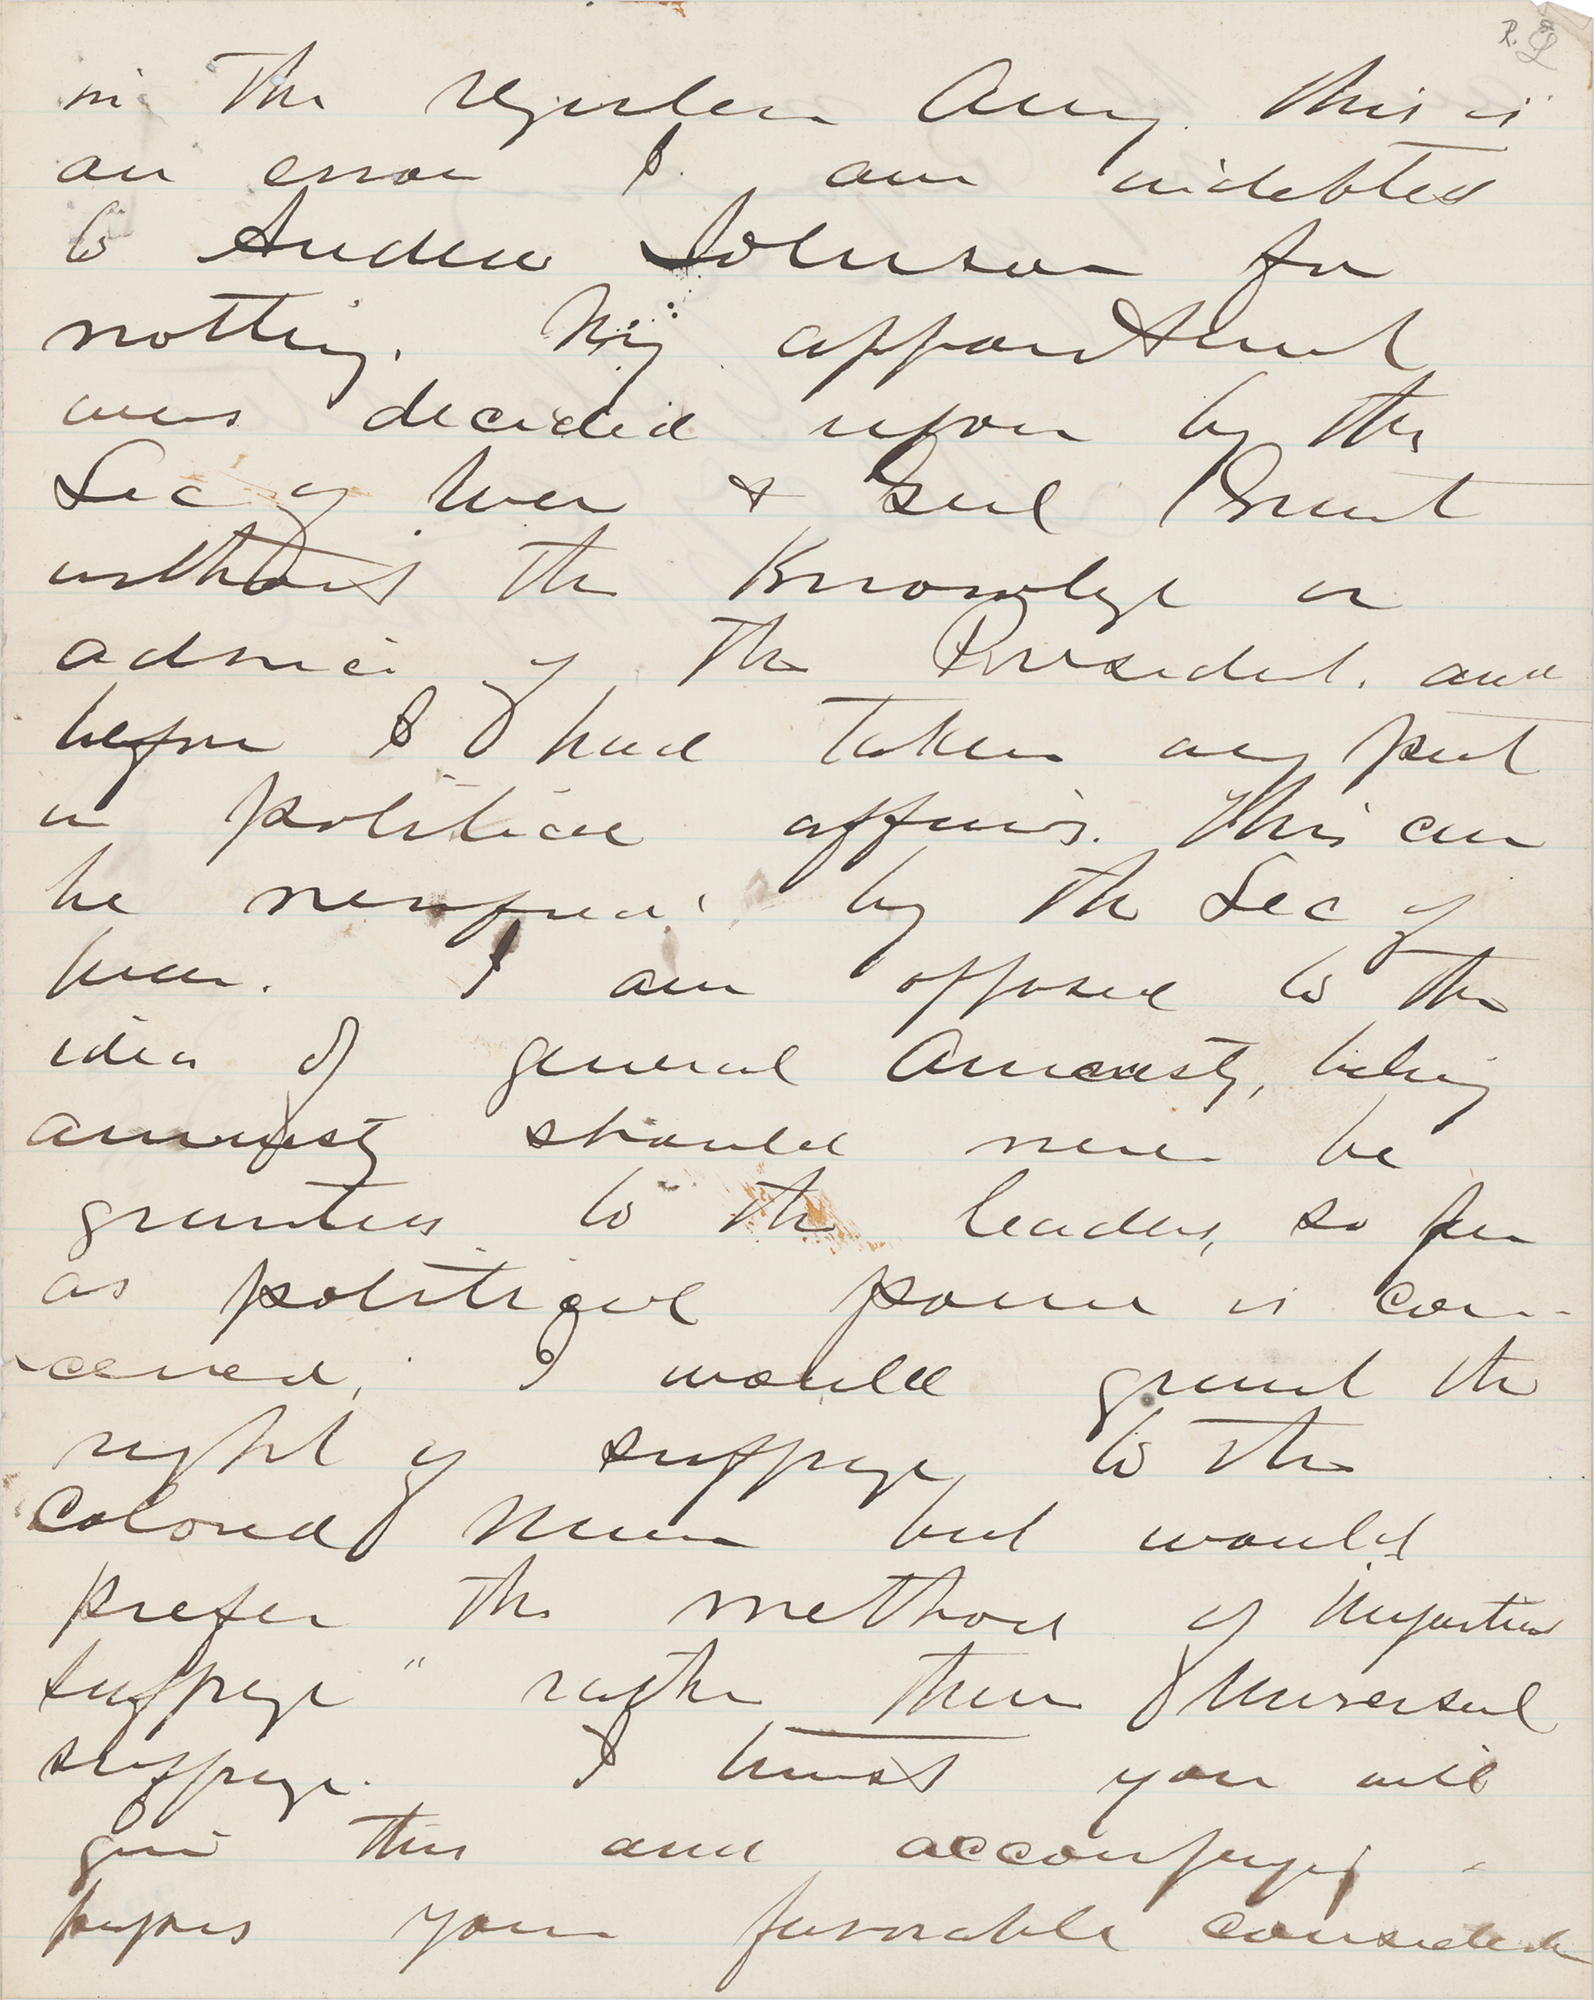 R. L
in the regular Army. This is
an error I am indebted
to Andrew Johnson for
nothing. My appointment
was decided upon by the
Sec of War & Genl Grant
without the knowledge or
advice of the President. and
before I had taken any part
in political affairs. This can
be verified by the Sec of
War. I am opposed to the
idea of general Amnesty,
amnesty should never be
granted to the leaders, so far
as political power is con-
cerned, I would grant the
right of suffrage to the
Colored Man but would
prefer the method of Impartial
suffrage" rather than Universal
suffrage. I trust you will
give this and accompanying
papers your favorable consideration